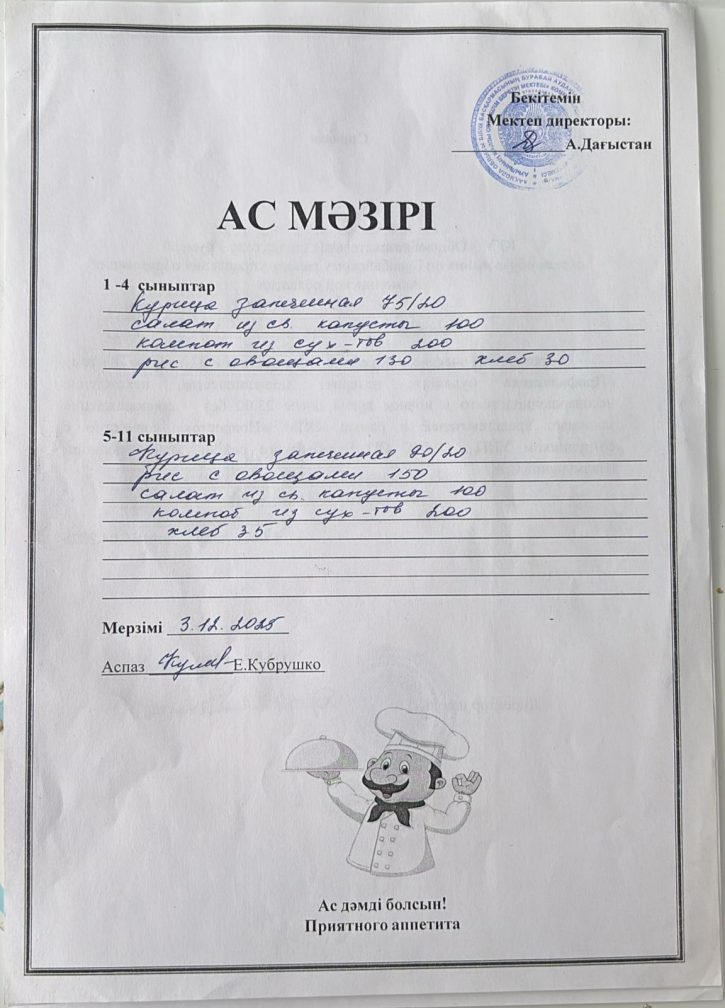 Бекітемін
Мектеп директоры:
А.Дағыстан
АС МӘЗІРІ
1 -4 сыныптар
Курица запеченная 75/20
салат из св. капусты 100
компот из сух-тов 200
рис с овощами 130 хлеб 30
5-11 сыныптар
Курица запеченная 90/20
рис с овощами 150
салат из св. капусты 100
компот из сух-тов 200
хлеб 35
Мерзімі 3.12.2025
Аспаз Е.Кубрушко
Ас дәмді болсын!
Приятного аппетита